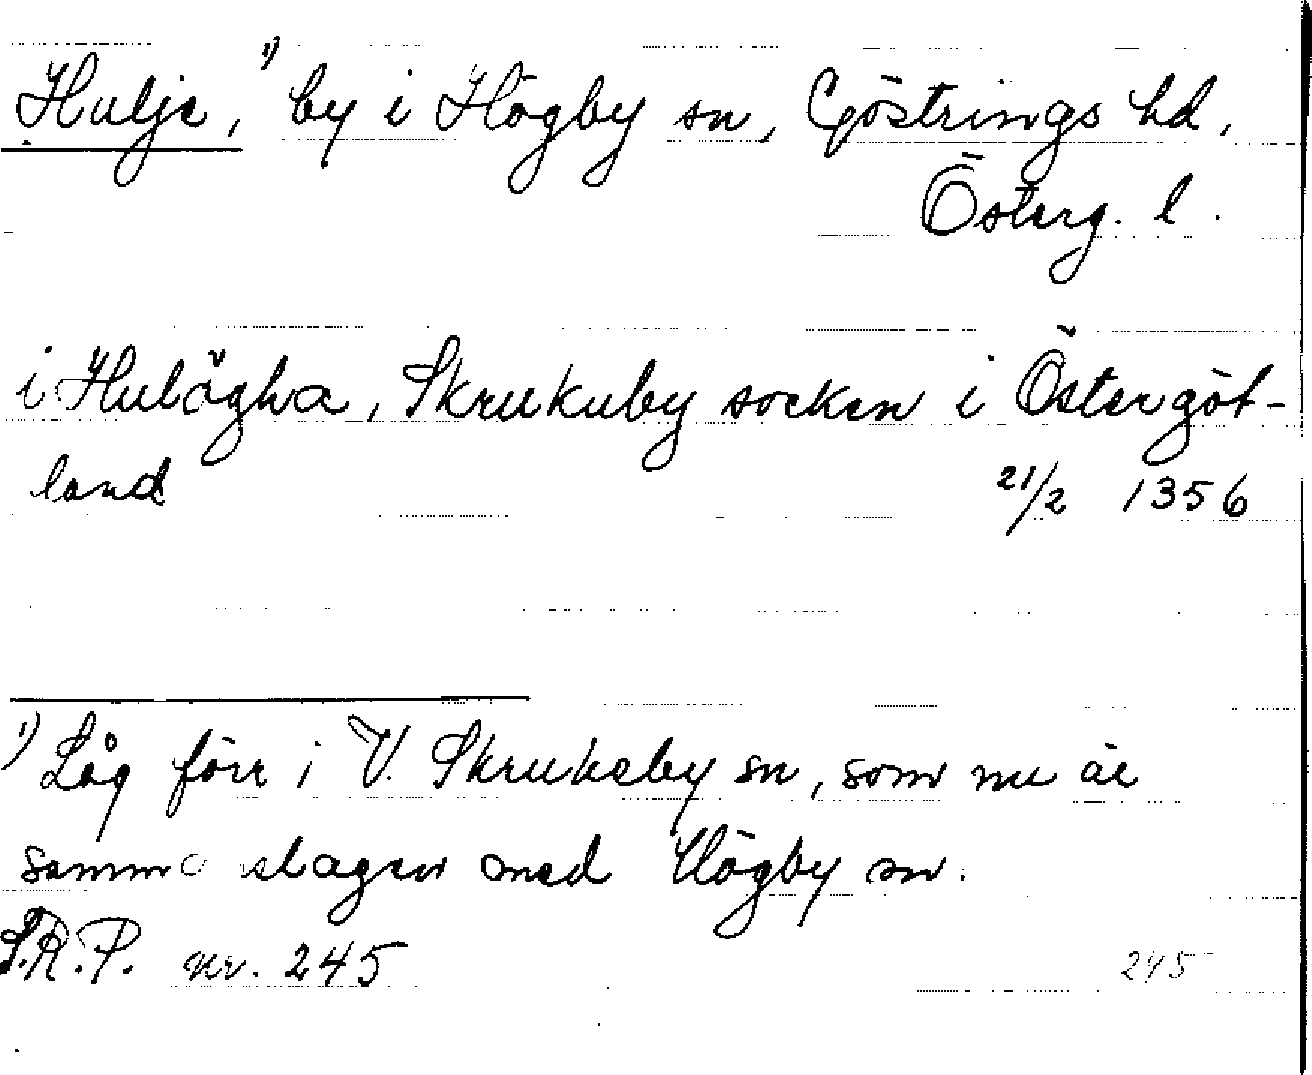 Hulje,¹⁾ by i Högby sn, Göstrings hd,
Österg. l.
i Hulägha, Skrukuby socken i Östergöt-
land 21/2 1356
¹⁾ Låg förr i V. Skrukeby sn, som nu är
sammanslagen med Högby sn.
S.R.P. nr. 245
245